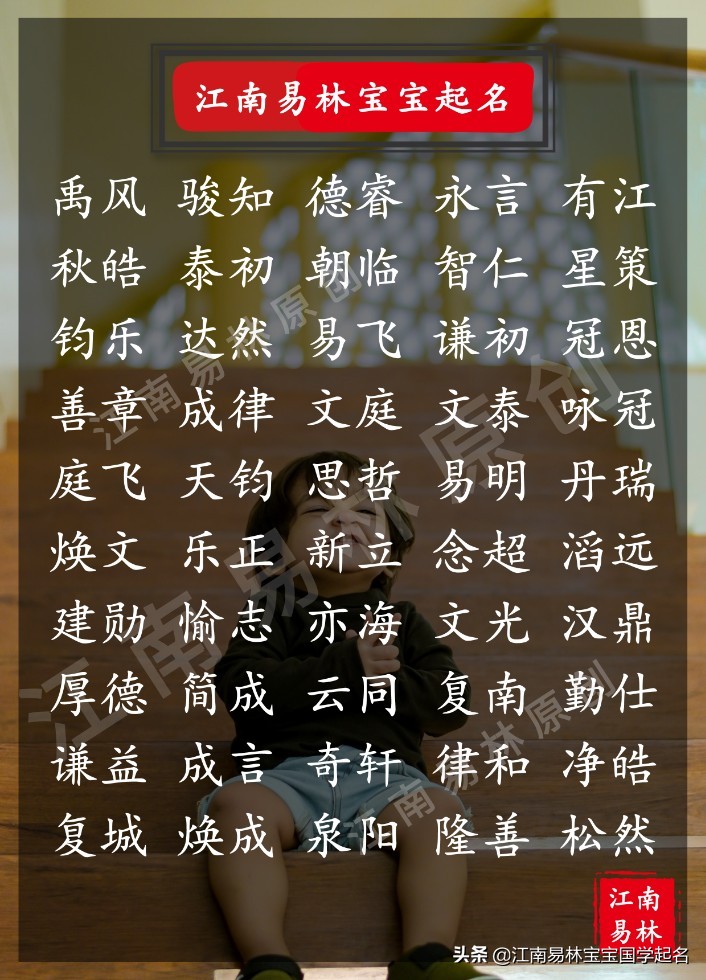 江南易林宝宝起名
禹风 骏知 德睿 永言 有江
秋皓 泰初 朝临 智仁 星策
钧乐 达然 易飞 谦初 冠恩
善章 成律 文庭 文泰 咏冠
庭飞 天钧 思哲 易明 丹瑞
焕文 乐正 新立 念超 滔远
建勋 愉志 亦海 文光 汉鼎
厚德 简成 云同 复南 勤仕
谦益 成言 奇轩 律和 净皓
复城 焕成 泉阳 隆善 松然
江南易林原创
江南易林原创
江南易林原创
江南
易林
头条 @江南易林宝宝国学起名